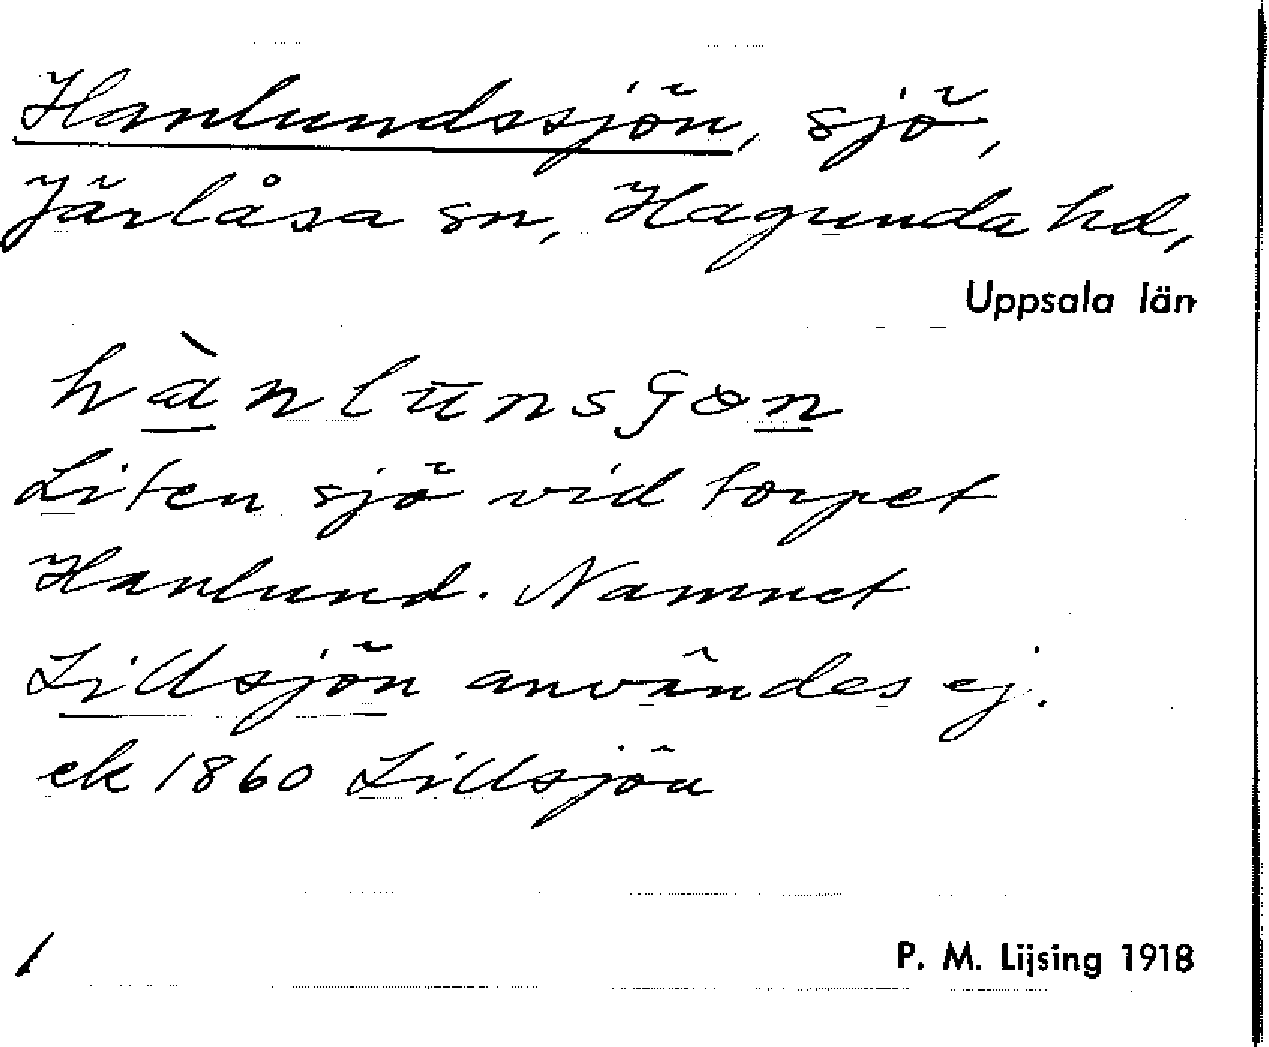 Hanlundssjön, sjö,
Järlåsa sn, Hagunda hd,
Uppsala län
hànlunsʃön
Liten sjö vid torpet
Hanlund. Namnet
Lillsjön användes ej.
ek 1860 Lillsjön
P. M. Lijsing 1918